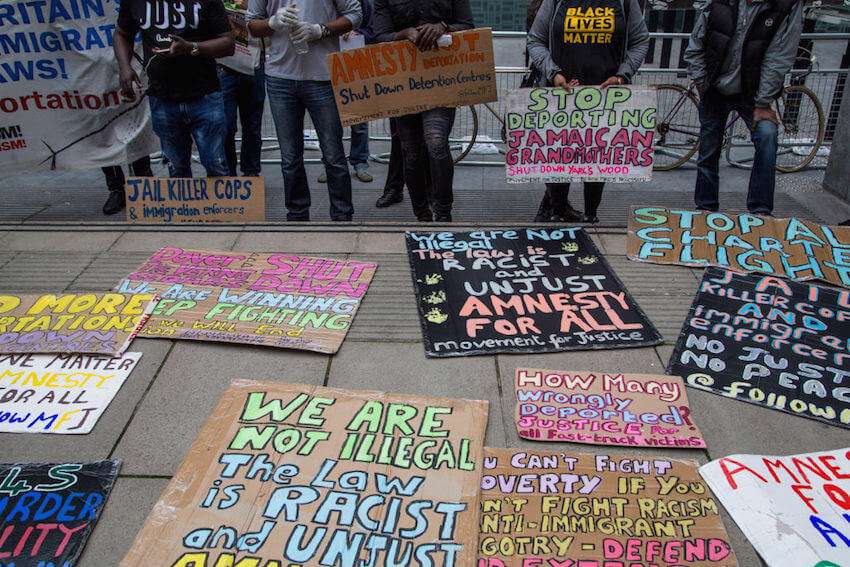 BRITAIN'S
IMMIGRATI
LAWS!
portations
M!
ISM!
JUST
AMNESTY NOT
DEPORTATION
Shut Down Detention Centres
MOVEMENT FOR JUSTICE
BLACK
LIVES
MATTER
STOP
DEPORTING
JAMAICAN
GRANDMOTHERS
SHUT DOWN YARL'S WOOD
MOVEMENT for JUSTICE
JAIL KILLER COPS
& immigration enforcers
STOP ALL
CHARTE
FLIGHT
Dover
SHUT
DOWN
We Are WINNING
EP FIGHTING
We will End
O MORE
ORTATION
We are Not
Illegal The law is
RACIST
and
UNJUST
AMNESTY
FOR ALL
movement for Justice
JAIL
KILLER COP
AND
immigration
enforcer
NO JUST
NO PEAC
@followM
WE MATTER
MNESTY
FOR ALL
LOWMFJ
How Many
wrongly
Deported?
JUSTICE for
all Fast-track victims
4S
URDER
LITY
WE ARE
NOT ILLEGAL
The Law
is RACIST
and UNJUST
U CAN'T FIGHT
OVERTY IF YOU
N'T FIGHT RACISM
NTI-IMMIGRANT
GOTRY - DEFEND
AMNES
FO
A